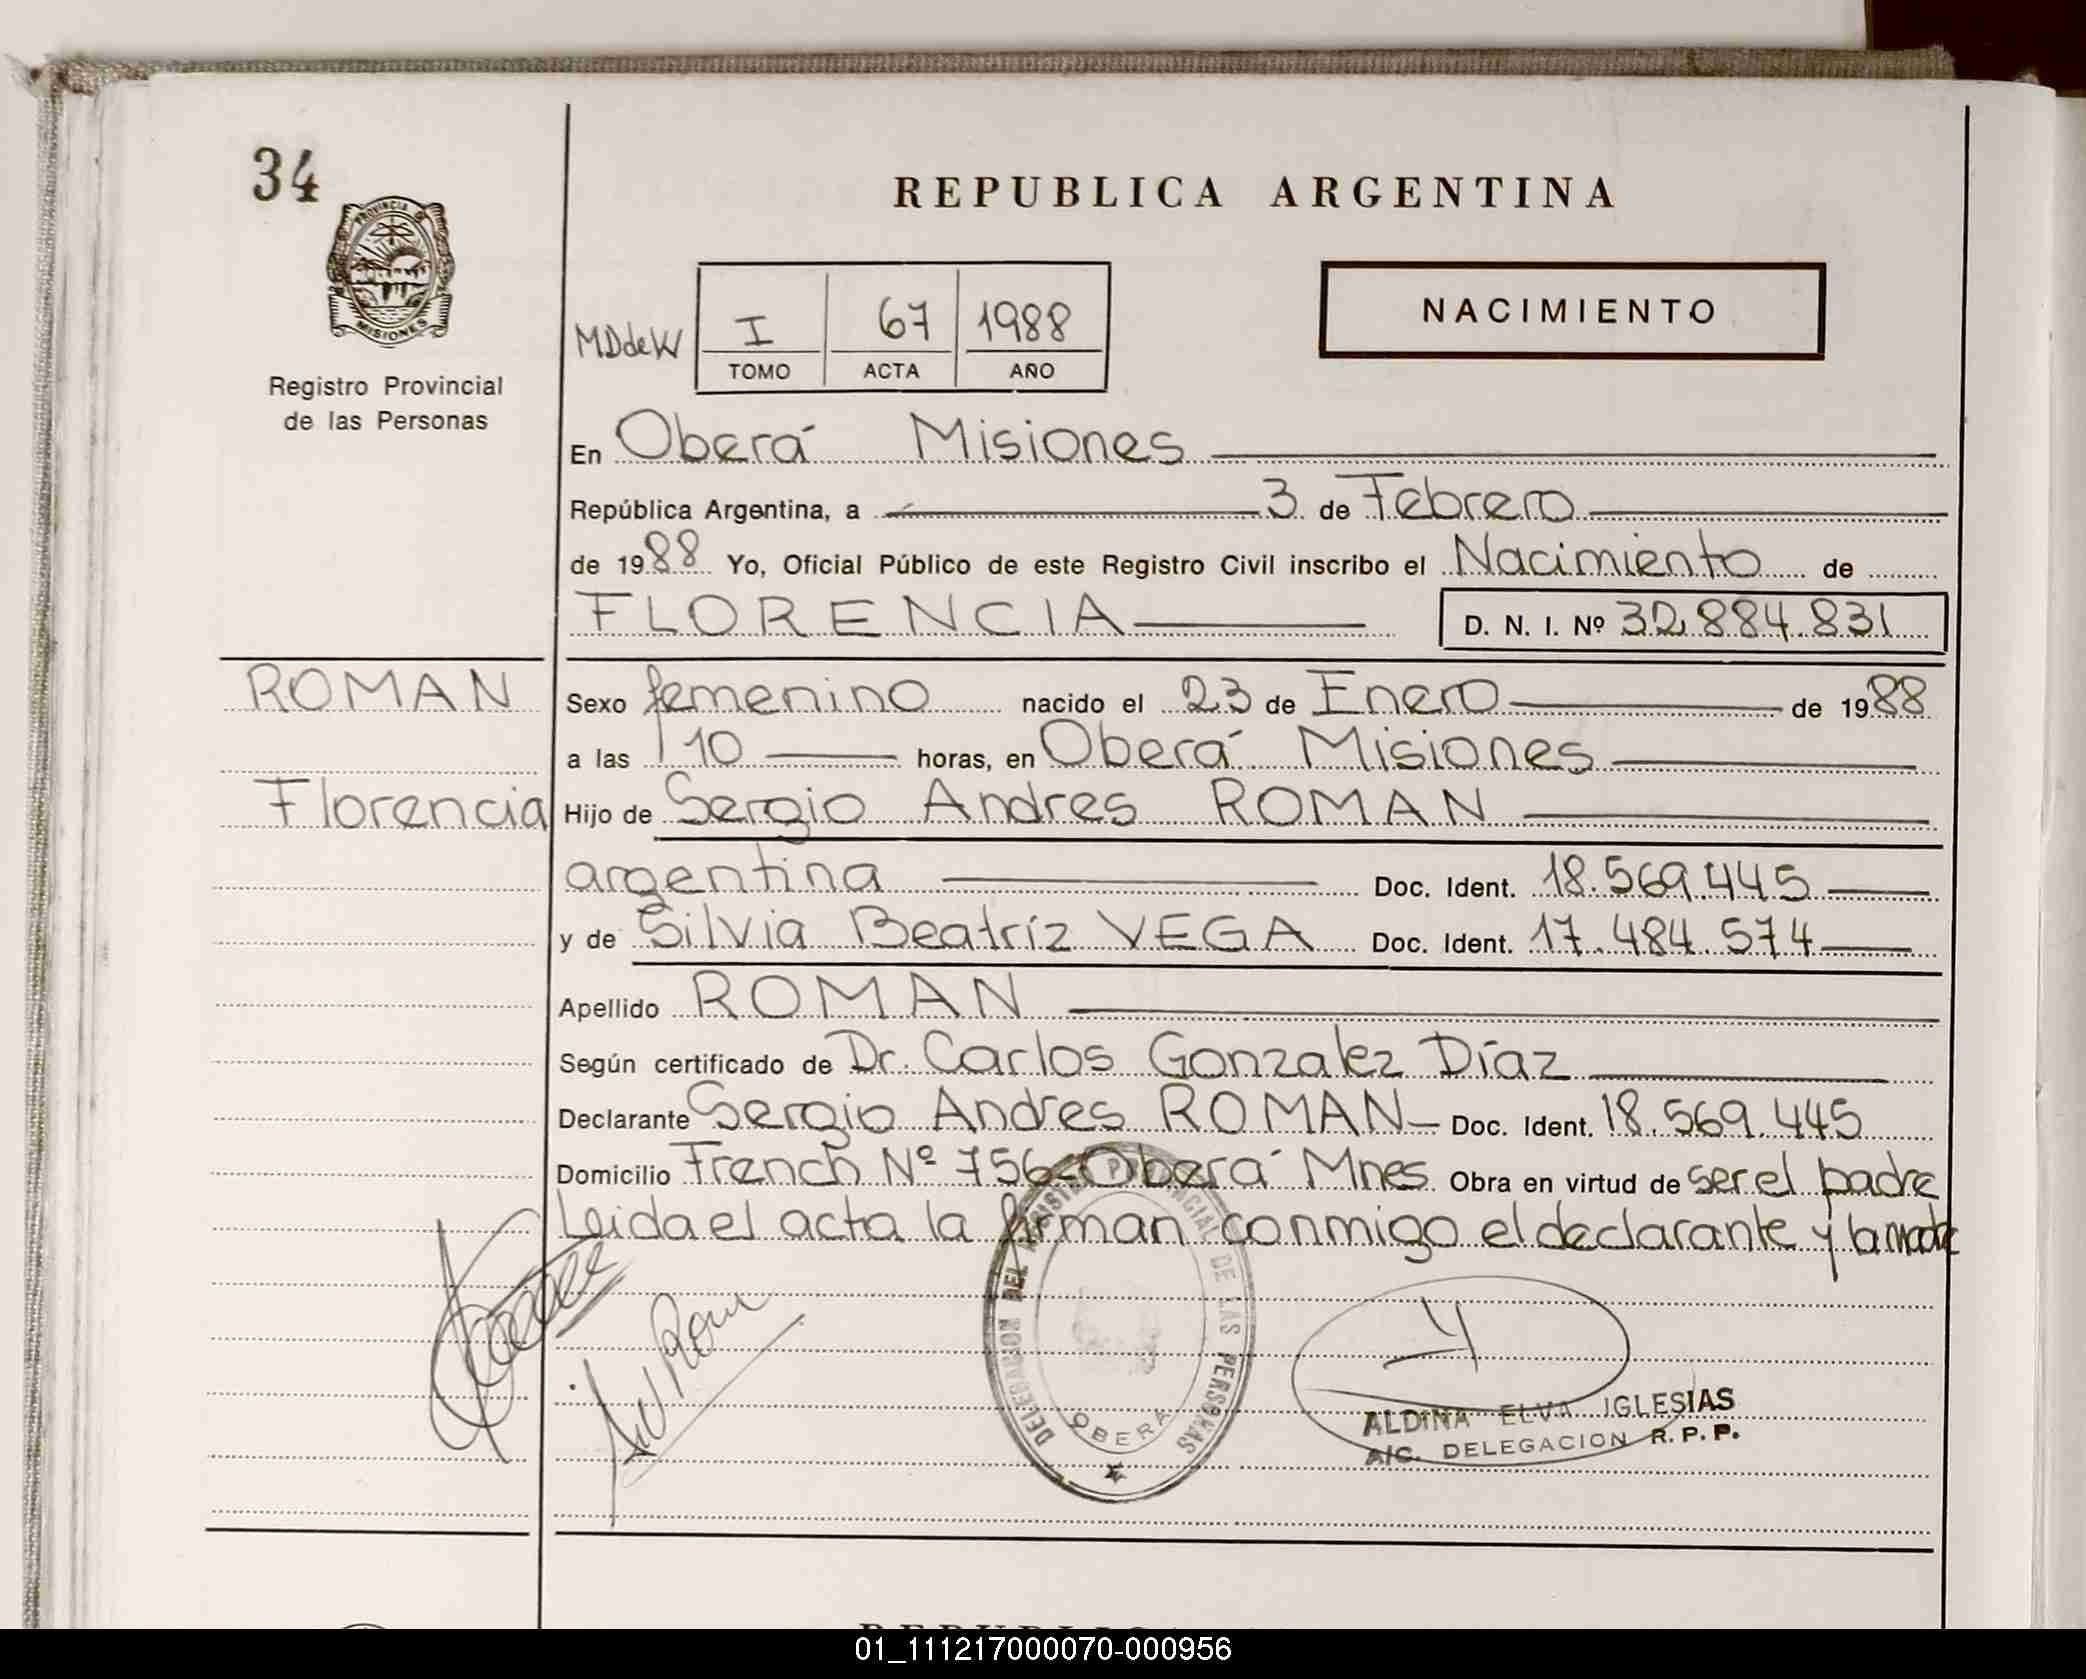 34
REPUBLICA ARGENTINA
PROVINCIA DE
MISIONES
NACIMIENTO
MDdeW
I 67 1988
TOMO ACTA AÑO
Registro Provincial
de las Personas
En Oberá Misiones
República Argentina, a 3 de Febrero
de 1988 Yo, Oficial Público de este Registro Civil inscribo el Nacimiento de
FLORENCIA D. N. I. Nº 32.884.831
ROMAN Sexo femenino nacido el 23 de Enero de 1988
a las 10 horas, en Oberá Misiones
Florencia Hijo de Sergio Andres ROMAN
argentina Doc. Ident. 18.569.445
y de Silvia Beatríz VEGA Doc. Ident. 17.484.574
Apellido ROMAN
Según certificado de Dr. Carlos Gonzalez Díaz
Declarante Sergio Andres ROMAN Doc. Ident. 18.569.445
Domicilio French Nº 756-Oberá Mnes Obra en virtud de ser el padre
Leida el acta la firman conmigo el declarante y la madre
DELEGACION DEL REGISTRO PROVINCIAL DE LAS PERSONAS
OBERA
ALDINA ELVA IGLESIAS
A/C. DELEGACION R. P. P.
01_111217000070-000956